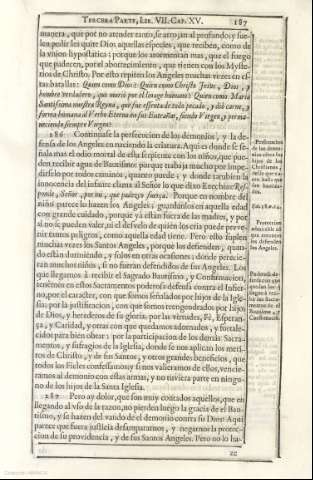 TERCERA PARTE, LIB. VII. CAP. XV. 187
manera, que por no atender tanto, se arrojan al profundo; y sue-
len pedirles quite Dios aquellas especies, que reciben, como de
la vnion hypostatica: porque los atormentan mas, que el fuego
que padecen, por el aborrecimiento, que tienen con los Myste-
rios de Christo. Por esto repiten los Angeles muchas vezes en es-
tas batallas: Quien como Dios? Quien como Christo Jesus, Dios, y
hombre verdadero, que murió por el linage humano? Quien como Maria
Santissima nuestra Reyna, que fue essenta de todo pecado, y dió carne, y
forma humana al Verbo Eterno en sus Entrañas, siendo Virgen, y perma-
neciendo siempre Virgen?
186 Continuase la persecucion de los demonios, y la de-
fensa de los Angeles en naciendo la criatura. Aqui es donde se se-
ñala mas el odio mortal de esta serpiente con los niños, que pue-
den recibir agua de Bautismo: porque trabaja mucho por impe-
dirselo por todos caminos, quanto puede; y donde tambien la
innocencia del infante clama al Señor lo que dixo Ezechias: Res-
ponde, Señor, por mi, que padezco fuerça. Porque en nombre del
niño parece lo hazen los Angeles: guardanlos en aquella edad
con grande cuidado, porque yá están fuera de las madres, y por
si no se pueden valer, ni el desvelo de quien los cria puede preve-
nir tantos peligros, como aquella edad tiene. Pero esto suplen
muchas vezes los Santos Angeles, porque los defienden, quan-
do están durmiendo, y solos en otras ocasiones; donde perecie-
ran muchos niños, si no fueran defendidos de sus Angeles. Los
que llegamos à recibir el Sagrado Bautismo, y Confirmacion,
tenemos en estos Sacramentos poderosa defensa contra el Infier-
no, por el caracter, con que somos señalados por hijos de la Igle-
sia; por la justificacion, con que somos reengendrados por hijos
de Dios, y herederos de su gloria; por las virtudes, Fè, Esperan-
ça, y Caridad, y otras con que quedamos adornados, y fortale-
cidos para bien obrar; por la participacion de los demás Sacra-
mentos, y sufragios de la Iglesia, donde se nos aplican los meri-
tos de Christo, y de sus Santos, y otros grandes beneficios, que
todos los Fieles confessamos; y si nos valieramos de ellos, vencie-
ramos al demonio con estas armas, y no tuviera parte en ningu-
no de los hijos de la Santa Iglesia.
187 Pero ay dolor, que son muy contados aquellos, que en
llegando al vso de la razon, no pierden luego la gracia de el Bau-
tismo, y se hazen del vando de el demonio contra su Dios! Aqui
parece que fuera justicia desampararnos, y negarnos la protec-
cion de su providencia, y de sus Santos Angeles. Pero no lo ha-